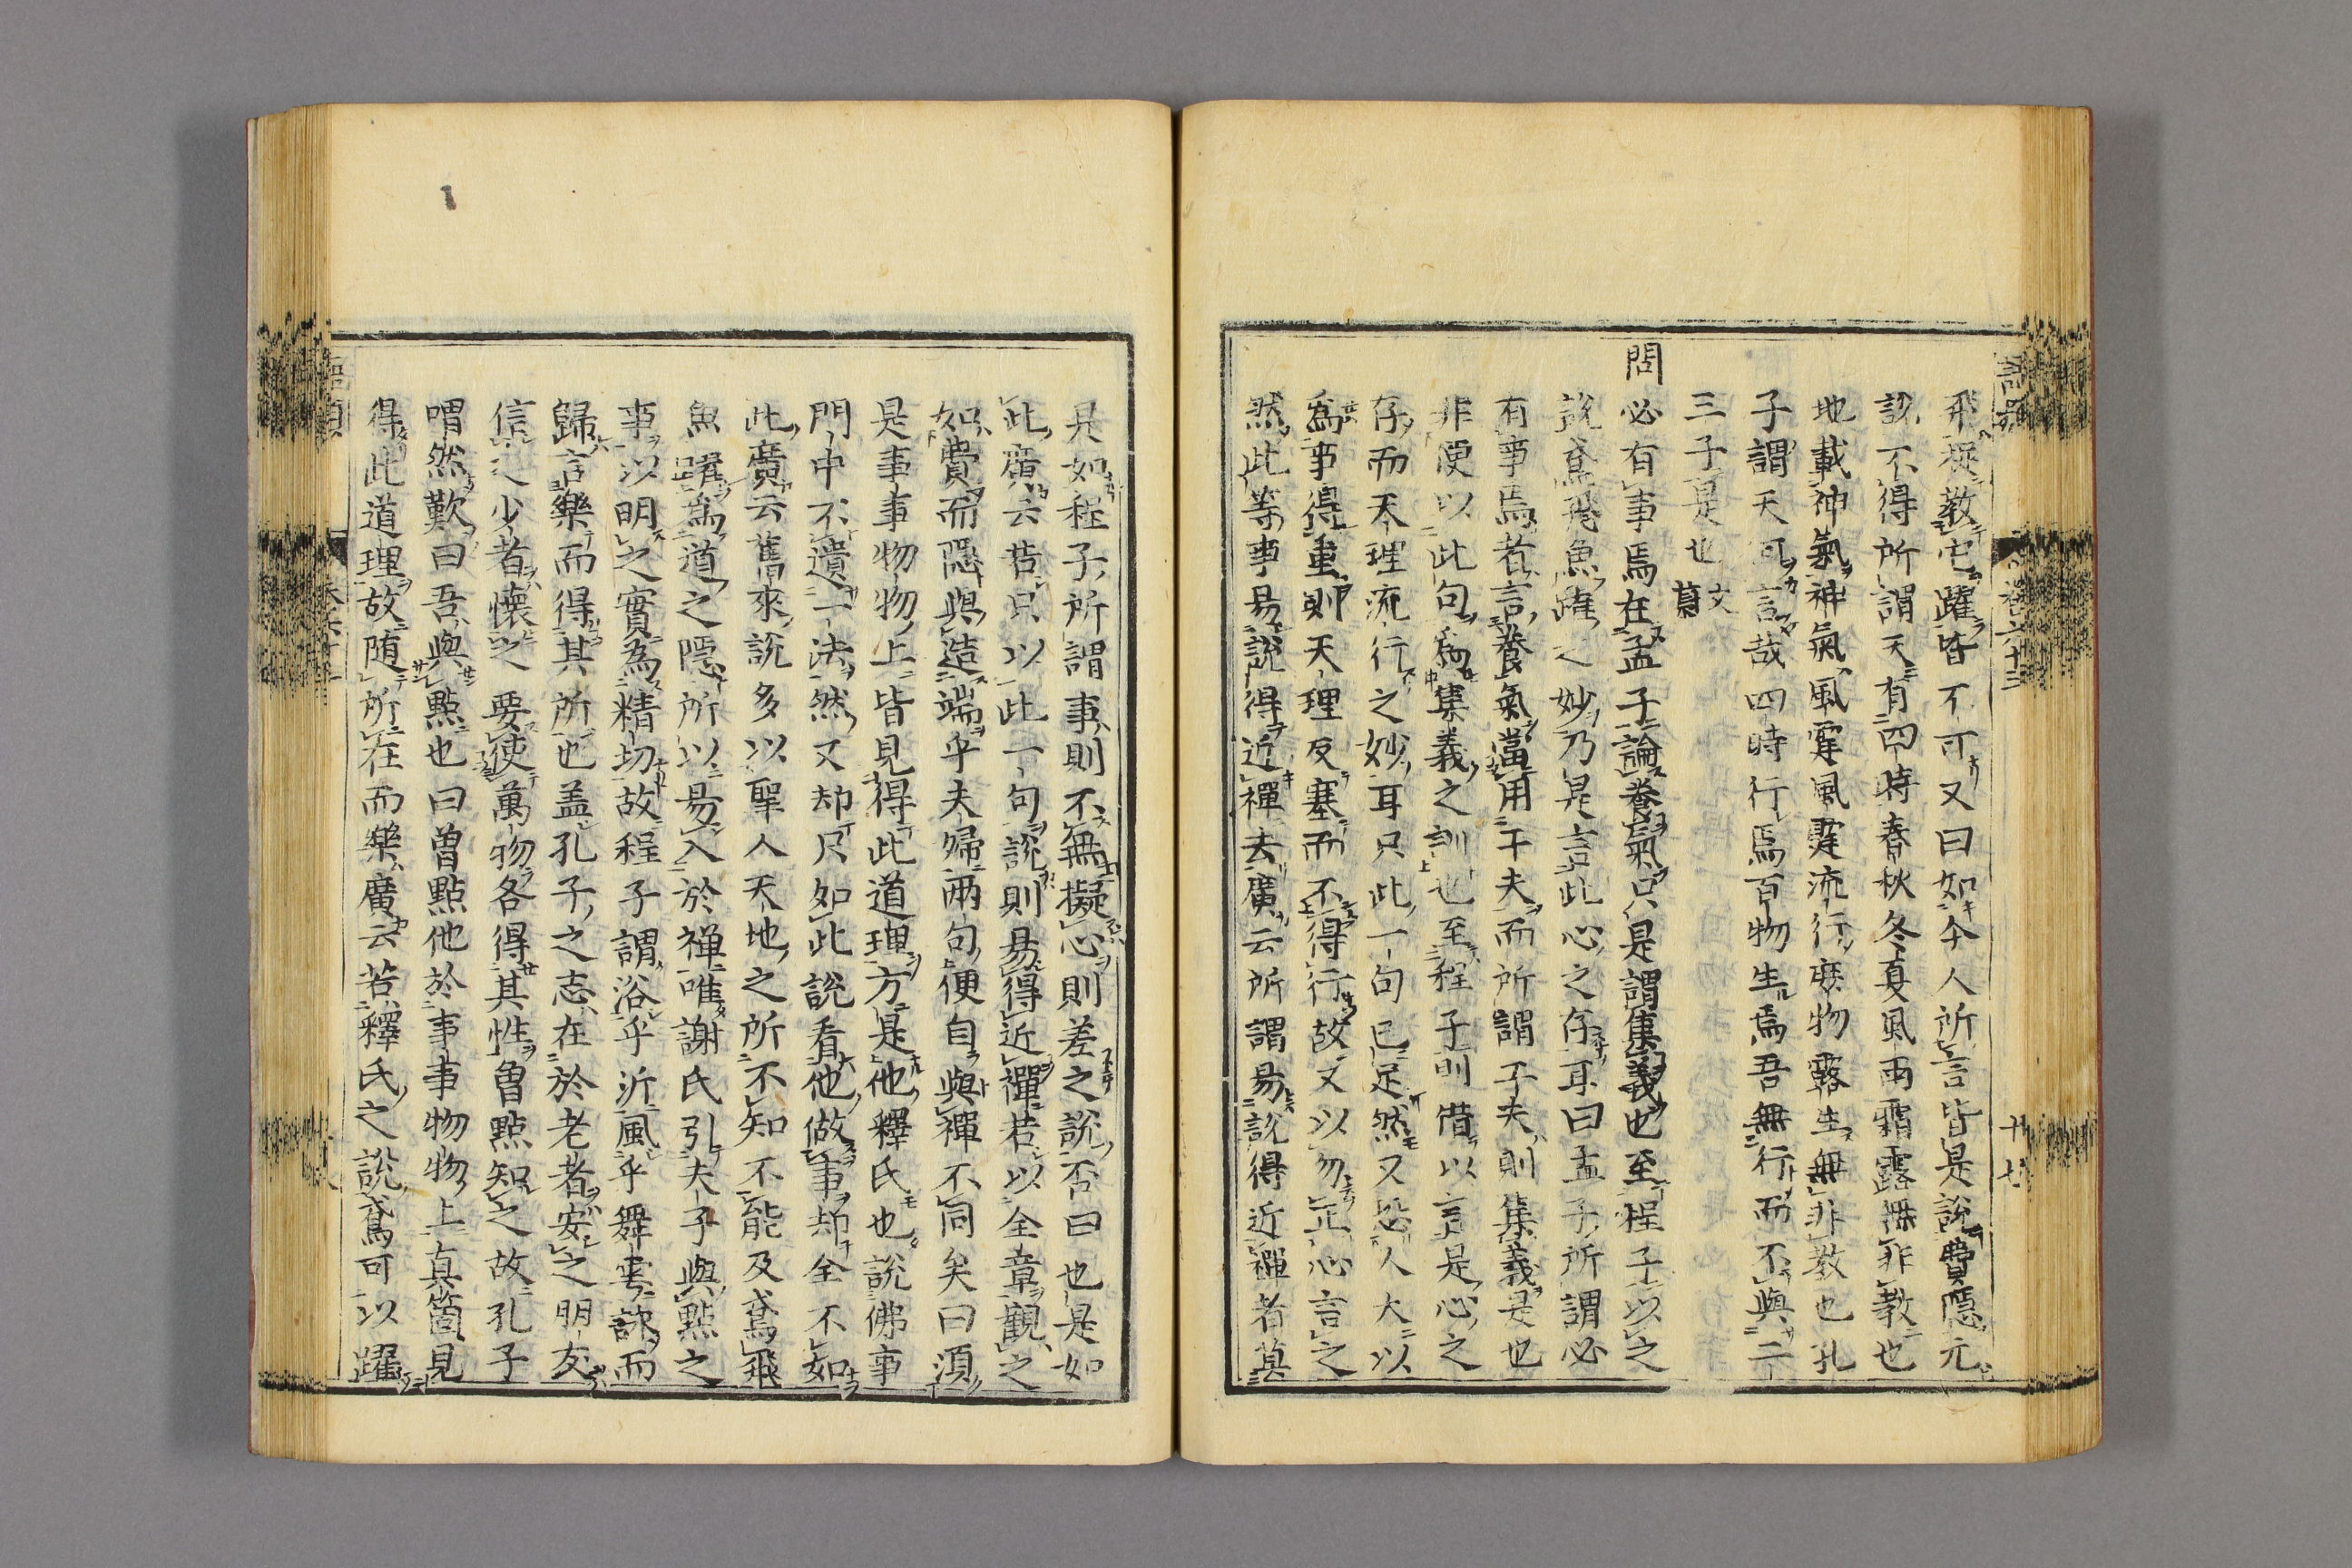 飛從教它躍皆不可又曰如今人所言皆是說費隱元
說不得所謂天有四時春秋冬夏風雨霜露無非教也
地載神氣神氣風霆風霆流行庶物露生無非教也孔
子謂天何言哉四時行焉百物生焉吾無行而不與二
三子是也文蔚
問必有事焉在孟子論養氣只是謂集義也至程子以之
說鳶飛魚躍之妙乃是言此心之存耳曰孟子所謂必
有事焉者言養氣當用工夫而所謂工夫則集義是也
非便以此句為集義之訓也至程子則借以言是心之
存而天理流行之妙耳只此一句已足然又恐人大以
為事得重則天理反塞而不得行故又以勿正心言之
然此等事易說得近禪去廣云所謂易說得近禪者莫
卷六十三
十七
是如程子所謂事則不無擬心則差之說否曰也是如
此廣云若只以此一句說則易得近禪若以全章觀之
如費而隱與造端乎夫婦兩句便自與禪不同矣曰須
是事事物物上皆見得此道理方是他釋氏也說佛事
門中不遺一法然又却只如此說看他做事却全不如
此廣云舊來說多以聖人天地之所不知不能及鳶飛
魚躍為道之隱所以易入於禅唯謝氏引夫子與點之
事以明之實為精切故程子謂浴乎沂風乎舞雩詠而
歸言樂而得其所也盖孔子之志在於老者安之朋友
信之少者懷之要使萬物各得其性曾點知之故孔子
喟然歎曰吾與點也曰曾點他於事事物物上真箇見
得此道理故随所在而樂廣云若釋氏之說鳶可以躍